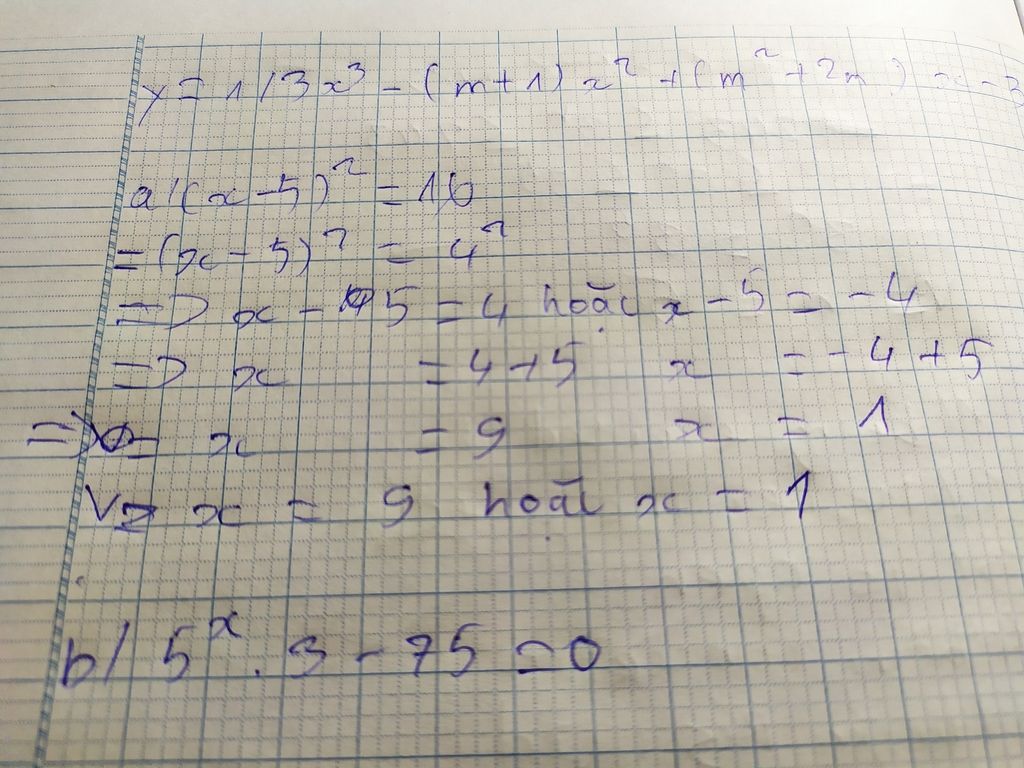 y = 1/3x³ - (m+1)x² + (m² + 2m)x - 3
a/(x-5)² = 16
= (x-5)² = 4²
=> x - 5 = 4 hoặc x - 5 = -4
=> x = 4+5 x = -4+5
=> x = 9 x = 1
x = 9 hoặc x = 1
b/ 5ˣ . 3 - 75 = 0